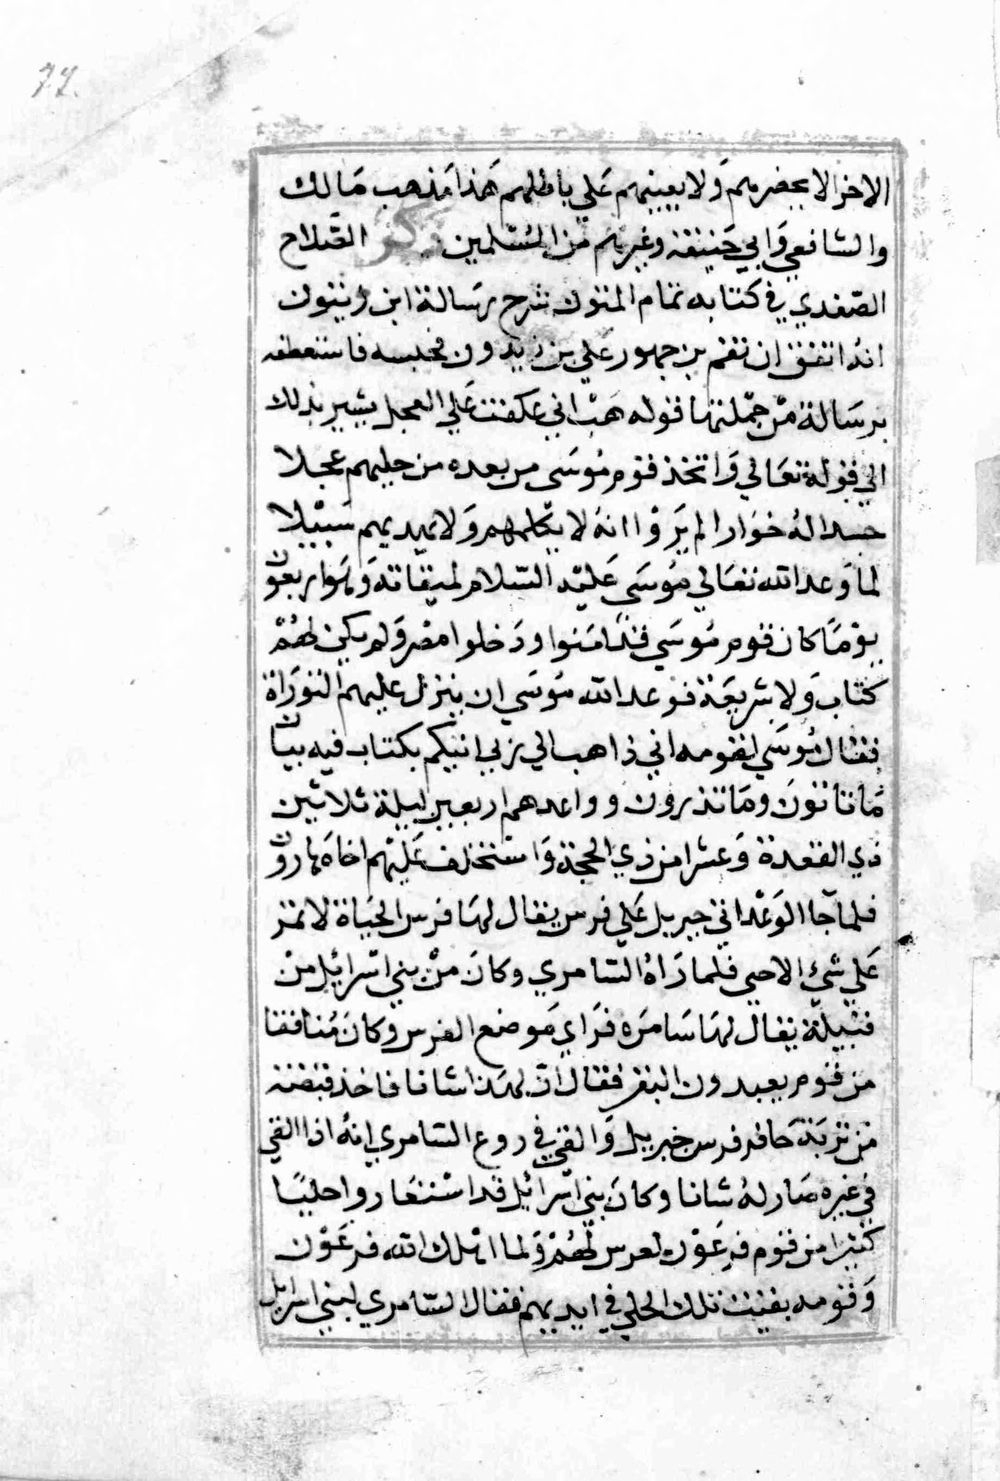 77
الاخر الا يحضرهم وَلا يعينهم عَلي باطلهم هَذا مَذهب مَالك
والشافعي وَابي حَنيفة وغيرهم من المُسْلمين ذكر الصّلاح
الصّفدي في كتابه تمام المتون شرح رسَالة ابن زيدون
انهُ اتفق ان نقم بن جهور علي بن زيدون فحبسه فاستعطفه
برسَالة مْن جمْلتها قوله هَبْ اني عكفت عَلي العجل يشير بذلك
الي قوله تعَالي وَاتخذ قوم مُوسَى من بعده من حليهم عجلا
جسدا لهُ خوَار الم يَرَوْا انهُ لا يكلمهم وَلا يهديهم سَبيْلا
لما وَعد الله تعَالي مُوسَي عَليْه السّلام لميقاته وَهوَ اربعون
يوْمًا كان قوم مُوسَي قد امَنوا ودَخلوا مصْر وَلم يكن لهُمْ
كتاب وَلا شريعَة فوعد الله مُوسَي ان ينزل عليهم التورَاة
فقال مُوسَي لقومه اني ذاهب الي رَبي اتيكم بكتاب فيه بيان
مَا تاتونَ ومَا تذرون وواعدهم اربعين ليلة ثلاثين
ذي القعدة وَعشرا من ذي الحجة وَاستخلف عَليْهم اخاهَ هارون
فلما جَا الوَعْد اتي جبريل عَلي فرس يقال لهَا فرس الحيَاة لا تمر
عَلي شيْ الا حيي فلما رَاهُ السّامري وكانَ منْ بني اسْرائيل منْ
قبيلة يقال لهَا سَامرَه فرَاي مَوضع الفرس وكانَ مُنافقا
من قوم يعبدون البقر فقال انّ لهذا شانا فاخذ قبضة
من تربَة حَافر فرس جبريل وَالقي في روع السّامري انهُ اذا القي
في غيره صَار لهُ شانا وكانَ بني اسْرائيل قد اسْتعَاروا حليًا
كثيْرا من قوم فرعَوْن لعرس لهُمْ وَلما اهْلك الله فرعَوْن
وَقومه بقيت تلك الحلي في ايديهم فقال السّامري لبني اسرايل